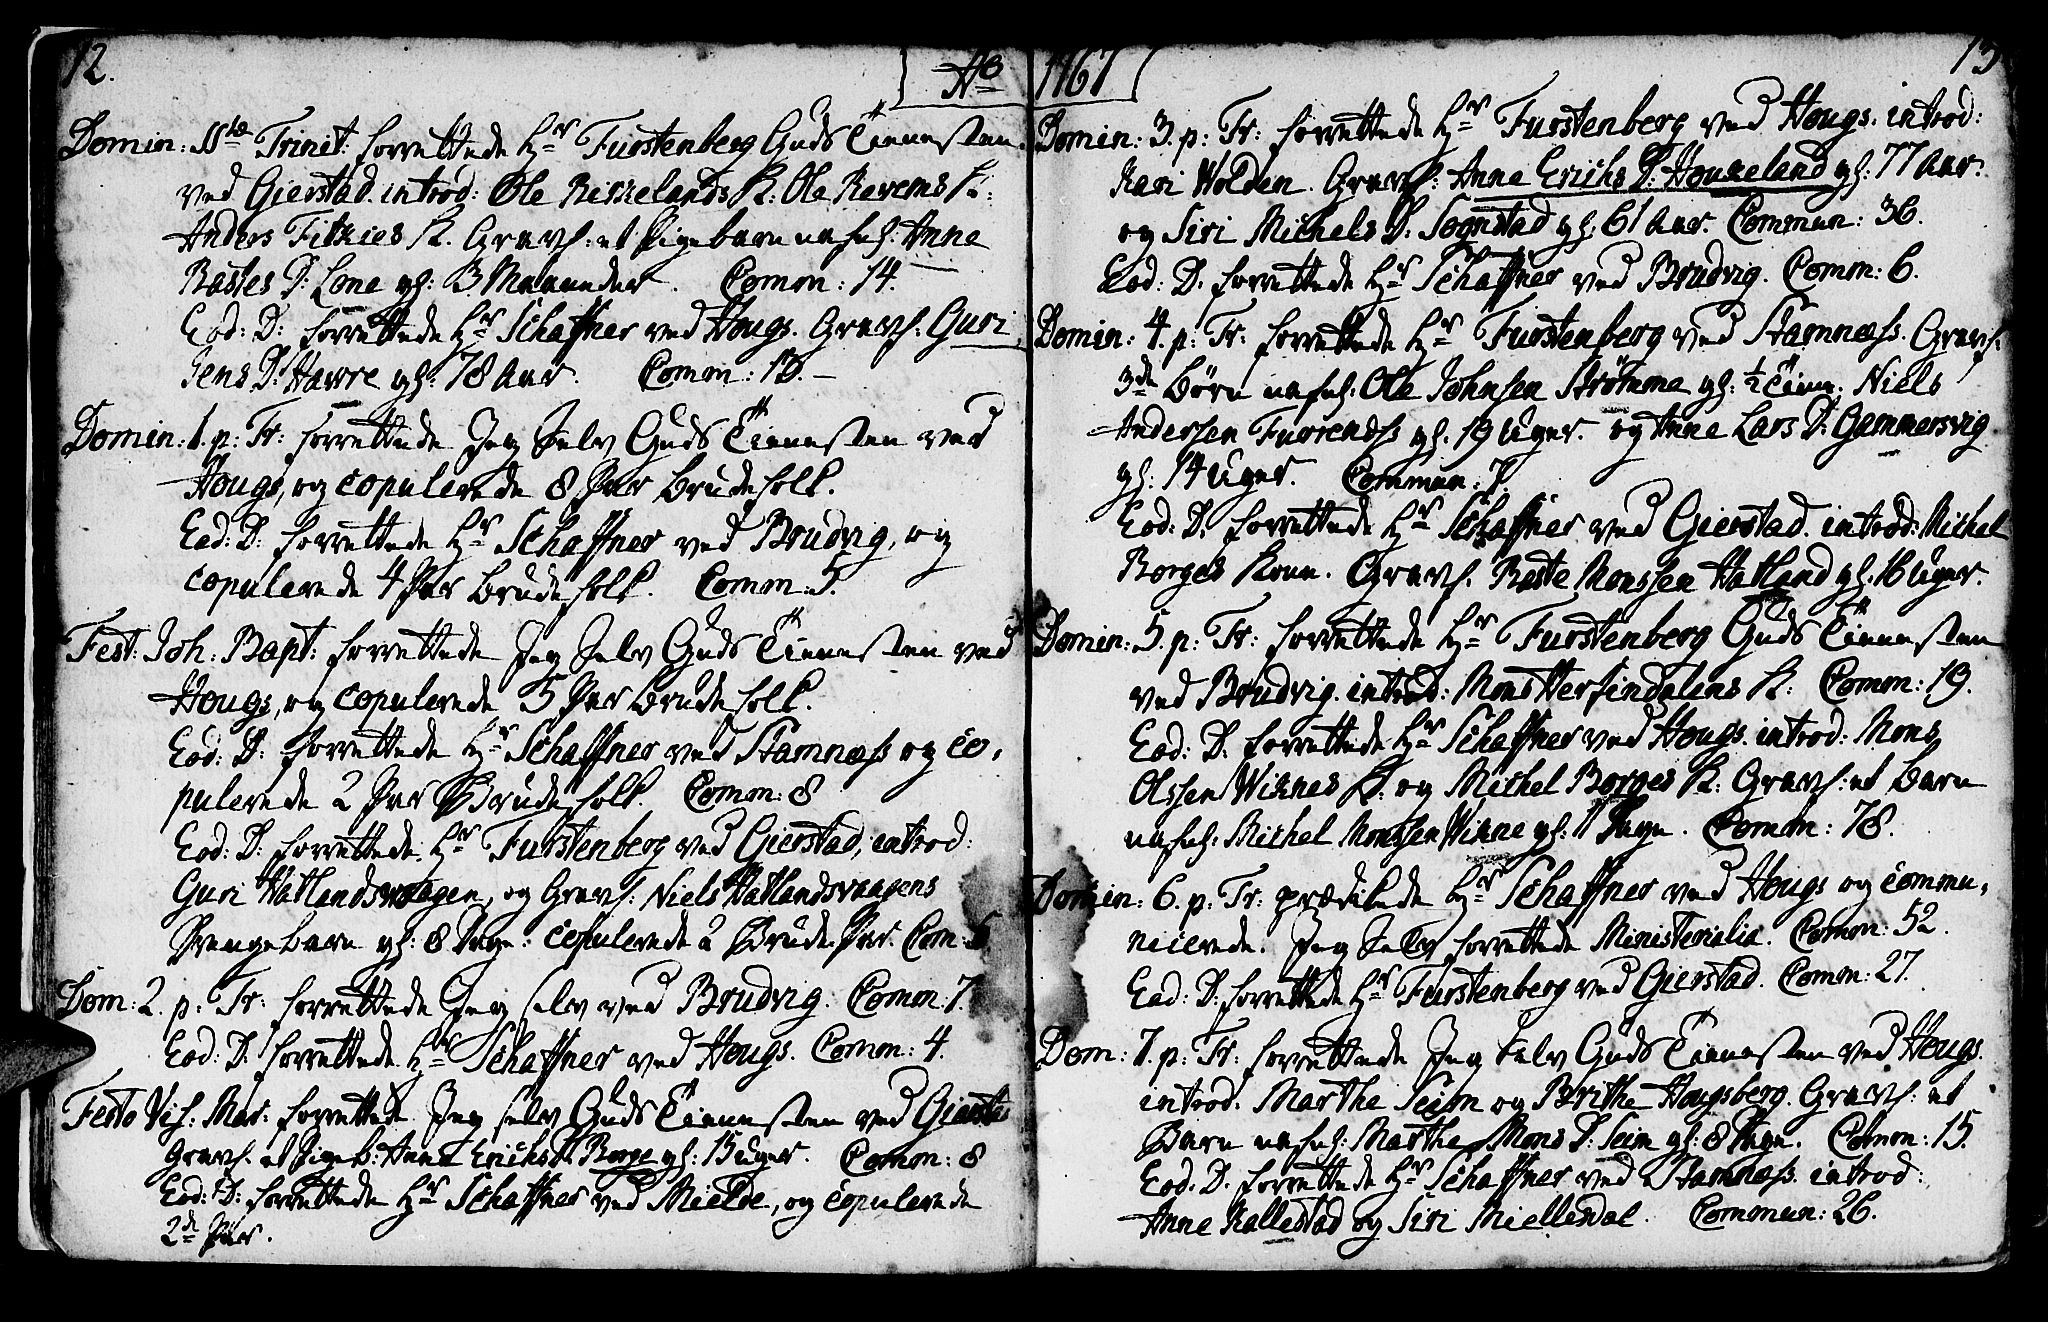 12.
Ao 1767
13
Domin: SSte Trinit: forrettede Hr Furstenberg Guds Tiennesten
ved Gierstad. introd: Ole Risselands K: Ole Revems K:
Anders Fitkies K. Gravf: et Pigebarn nafnl. Anne
Rastes D: Lone gl: 3 Maaneder. Comon: 14.
Eod: D: forrettede Hr Schaffner ved Hougs. Gravf. Guri
Jens D: Hawre gl: 78 Aar. Comm: 13.
Domin: 1. p: Tr: forrettede Jeg Selv Guds Tiennesten ved
Hougs, og copulerede 8 Par Brudefolk.
Eod: D: forrettede Hr Schaffner ved Brudvig, og
copulerede 4 Par Brudefolk. Comm: 5.
Fest: Joh: Bapt: forrettede Jeg Selv Guds Tiennesten ved
Hougs, og copulerede 5 Par Brudefolk.
Eod: D: forrettede Hr Schaffner ved Stamnæss og co,
pulerede 2 Par Brudefolk. Comon: 8
Eod: D: forrettede Hr Furstenberg ved Gierstad, introd:
Guri Hatlandsvaagen, og Gravf: Niels Hatlandsvaagens
Drengebarn gl: 8 Dage: copulerede 2 Brude Par. Com: 6
Dom: 2. p: Tr: forrettede Jeg selv ved Brudvig. Comon 7.
Eod: D. forrettede Hr Schaffner ved Hougs. Comon: 4.
Festo Vis: Mar: forrettede Jeg selv Guds Tiennesten ved Giersta
Gravf. et Pigeb: Anne Erichs D. Borge gl: 15 uger. Comon: 8
Eod: D: forrettede Hr Schaffner ved Mielde, og copulerede
2de Par.
Domin: 3. p: Tr: forrettede Hr Furstenberg ved Hougs. introd:
Kari Wolden. Gravf: Anne Erichs D: Houkeland gl: 77 Aar.
og Siri Michels D: Sognstad gl: 61 Aar. Commun: 36.
Eod: D. forrettede Hr Schaffner ved Brudvig. Comm: 6.
Domin: 4. p: Tr: forrettede Hr Furstenberg ved Stamnæss. Gravf:
3de Børn nafnl. Ole Johnsen Strømme gl: ½ Time. Niels
Anderssen Furrenæss gl. 19 Uger. og Anne Lars D: Gammersvig
gl: 14 Uger. Commun: 7.
Eod: D. forrettede Hr Schaffner ved Gierstad. introd: Michel
Borges Kone. Gravf. Raste Monssen Hatland gl. 16 Uger.
Domin: 5. p: Tr: forrettede Hr Furstenberg Guds Tiennesten
ved Brudvig. introd: Mons Herfindalens K: Comon: 19.
Eod: D. forrettede Hr Schaffner ved Hougs. introd: Mons
Olssen Wiknes K: og Michel Borges K: Gravf: et Barn
nafnl: Michel Monssen Winne gl: 1 Dage. Comm: 78.
Domin: 6. p: Tr: prædikede Hr Schaffner ved Hougs og commu,
nicerede. Jeg Selv forrettede Ministerialia. Comon: 52.
Eod: D: forrettede Hr Furstenberg ved Gierstad. Comm: 27.
Dom: 7. p: Tr: forrettede Jeg Selv Guds Tiennesten ved Hougs.
introd. Marthe Seim og Brithe Hougsberg. Gravf: et
Barn nafnl: Marthe Mons D: Seim gl: 8 Dage. Comon: 15.
Eod. D. forrettede Hr Schaffner ved Stamnæss. introd:
Anne Kallestad og Siri Miellesdal. Commun: 26.